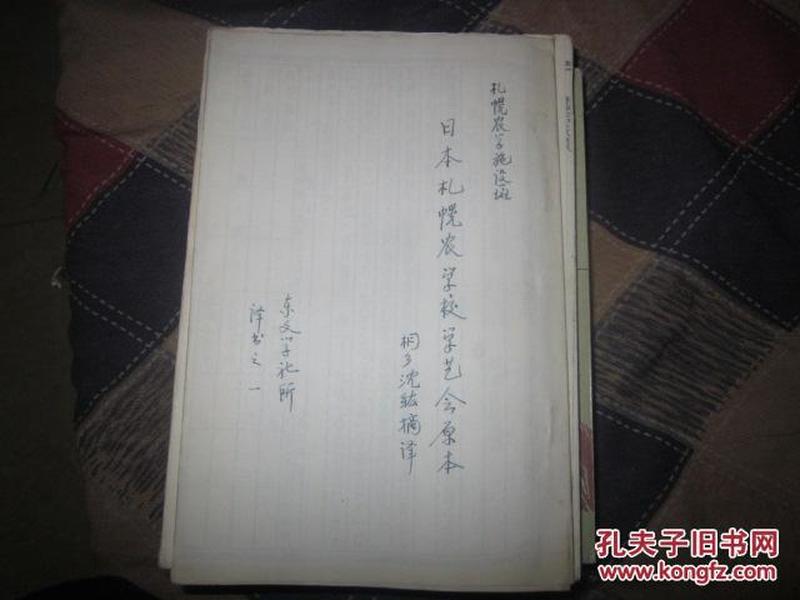 札幌农学施设斑
日本札幌农学校学艺会原本
桐乡沈纮摘译
东文学社所
译书之一
孔夫子旧书网
www.kongfz.com